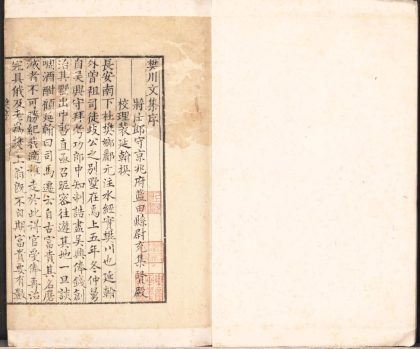 樊川文集序
將仕郎守京兆府藍田縣尉充集賢殿
校理裴延翰撰
長安南下杜樊鄉酈元注水經實樊川也延翰
外曾祖司徒岐公之別墅在焉上五年冬仲舅
自吳興守拜考功郎中知制誥盡吳興俸錢創
治其墅出中書直亟召昵客往遊其地一旦談
啁酒酣顧延翰曰司馬遷云自古富貴其名磨
滅者不可勝紀我適稚走於此得官受俸再治
完具俄及老為樊上翁既不自期富貴要有數